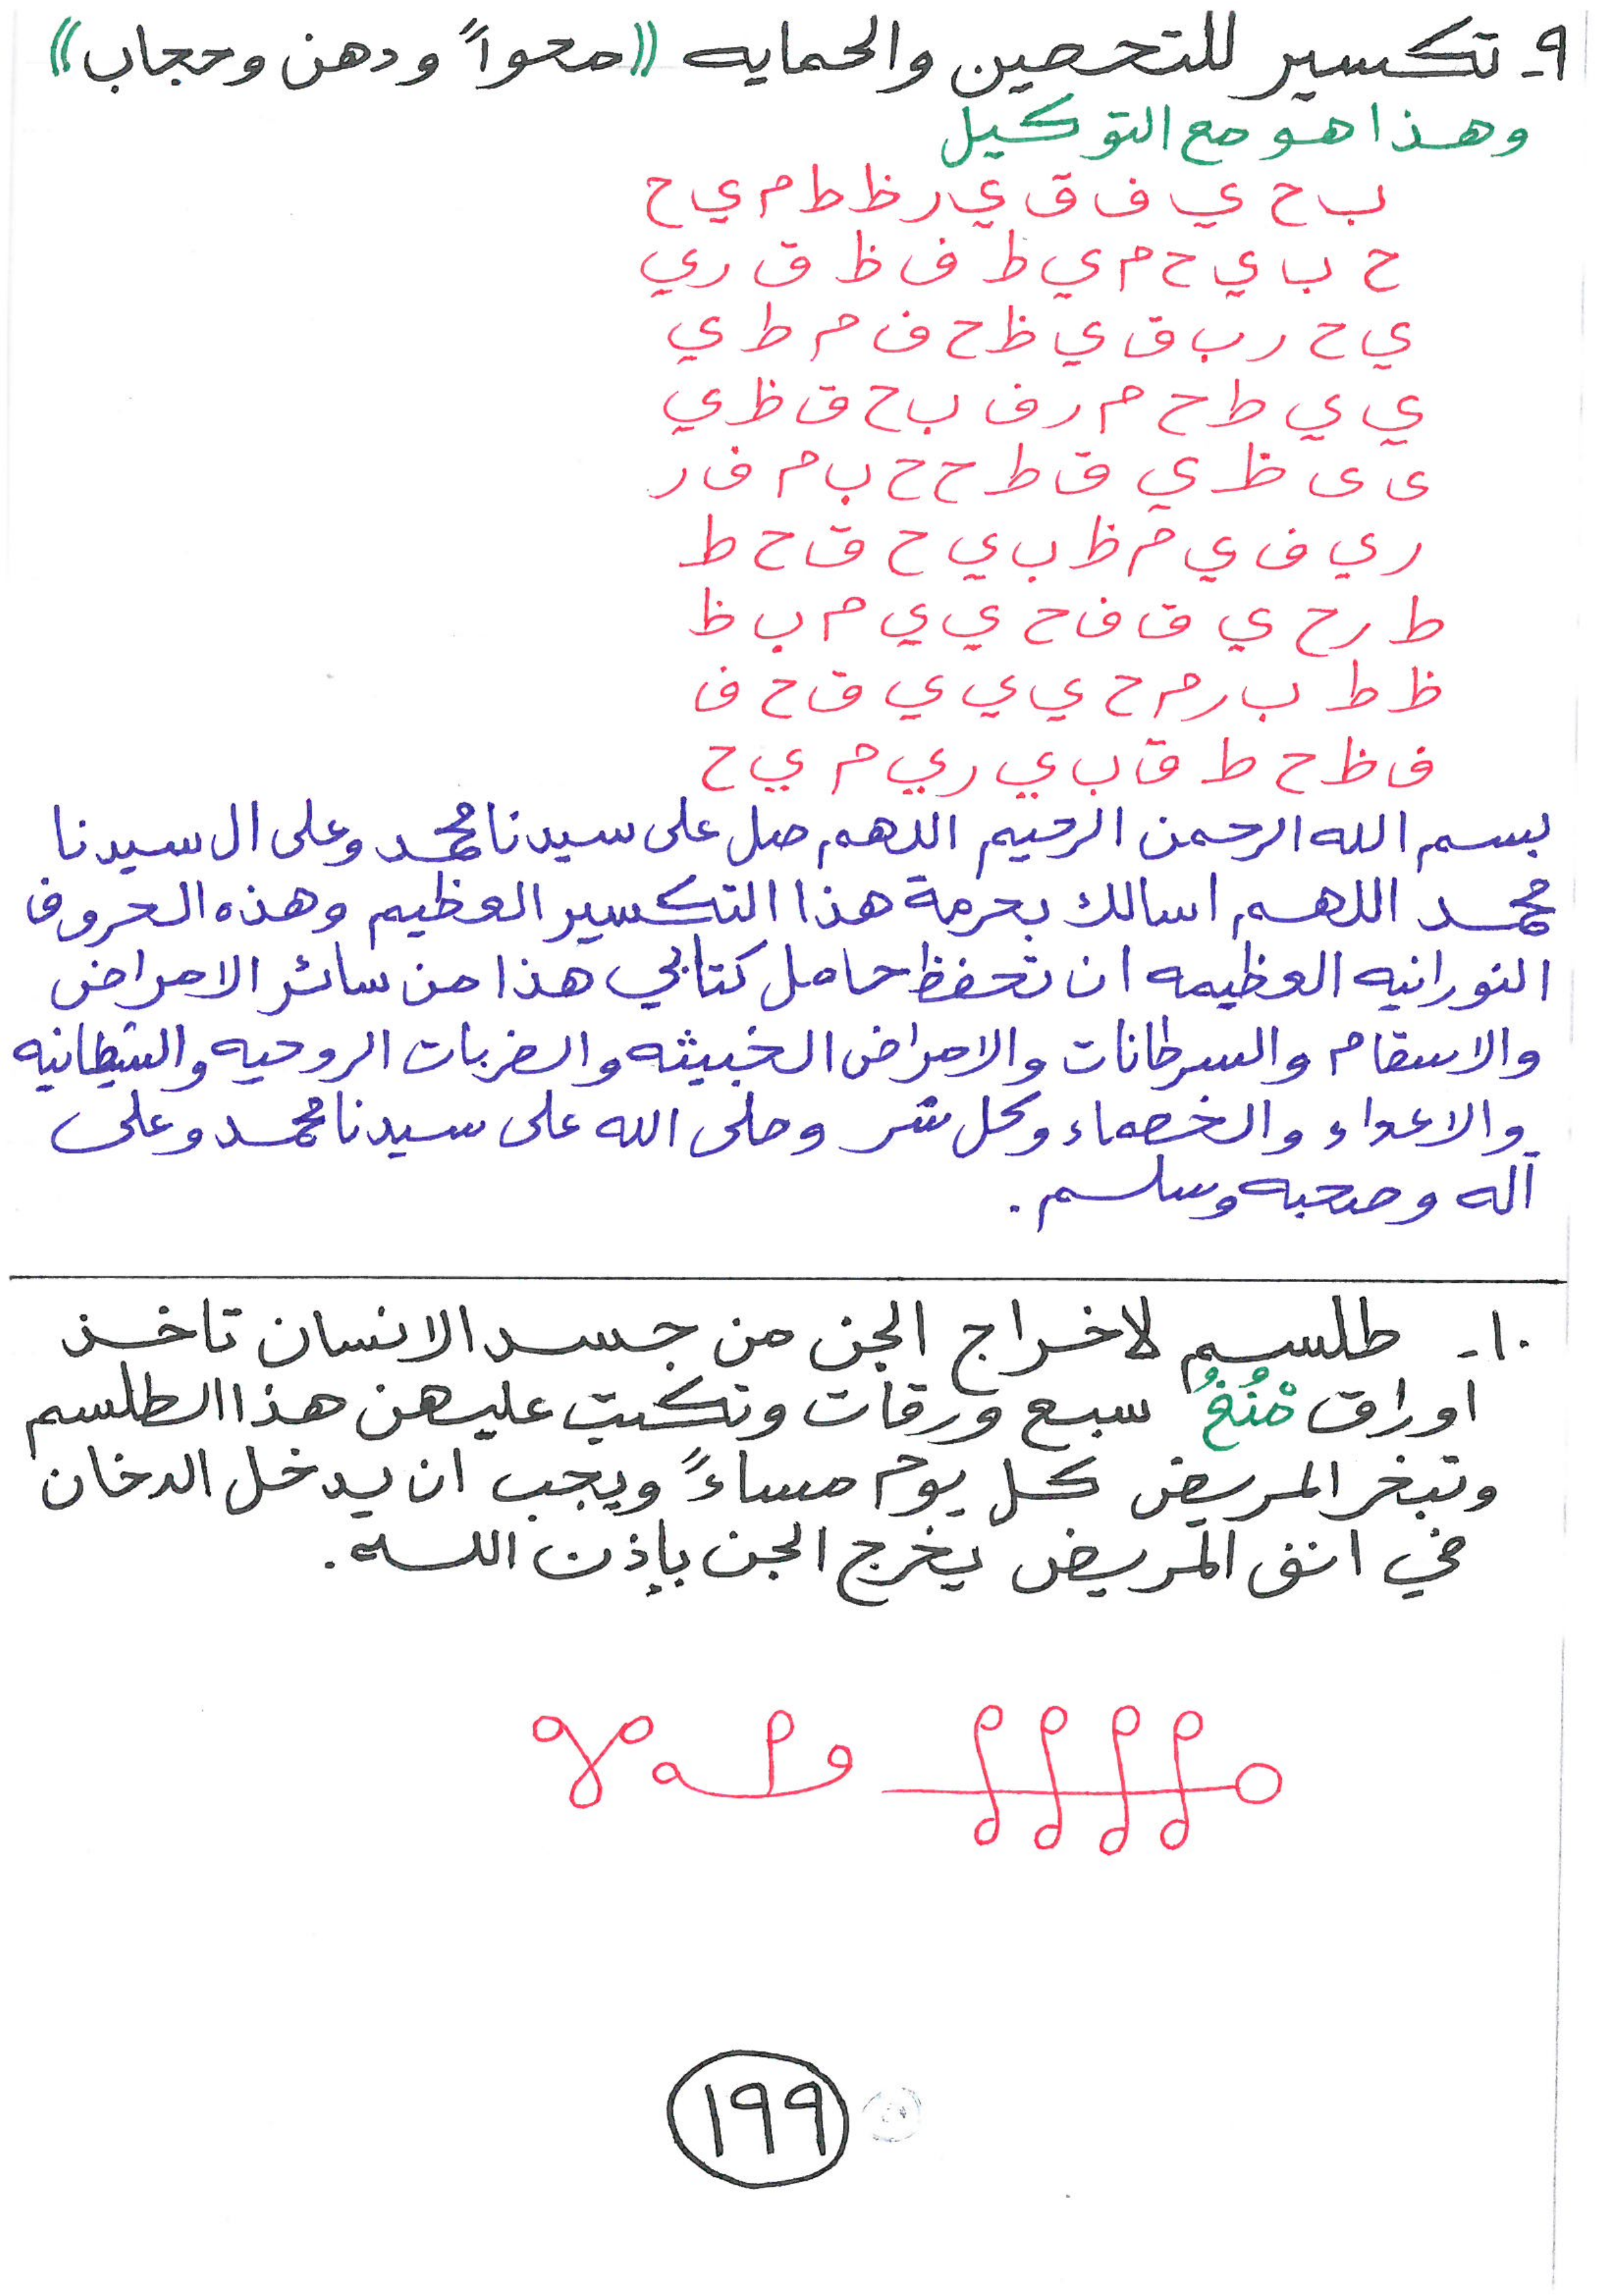 ٩- تكسير للتحصين والحمايه ((محواً ودهن وحجاب))
وهذا هو مع التوكيل
ب ح ي ف ق ي ر ظ ط م ي ح
ح ب ي ح م ي ط ف ظ ق ر ي
ي ح ر ب ق ي ظ ح ف م ط ي
ي ي ط ح م ر ف ب ح ق ظ ي
ى ى ظ ي ق ط ح ح ب م ف ر
ر ي ف ي م ظ ب ي ح ق ح ط
ط ر ح ي ق ف ح ي ي م ب ظ
ظ ط ب ر م ح ي ي ي ق ح ف
ف ظ ح ط ق ب ي ر ي م ي ح
بسم الله الرحمن الرحيم اللهم صل على سيدنا محمد وعلى ال سيدنا
محمد اللهم اسالك بحرمة هذا التكسير العظيم وهذه الحروف
النورانيه العظيمه ان تحفظ حامل كتابي هذا من سائر الامراض
والاسقام والسرطانات والامراض الخبيثه والضربات الروحيه والشيطانيه
والاعداء والخصماء وكل شر وصلى الله على سيدنا محمد وعلى
آله وصحبه وسلم.
١٠- طلسم لاخراج الجن من جسد الانسان تاخذ
اوراق سبع ورقات وتكتب عليهن هذا الطلسم
وتبخر المريض كل يوم مساءً ويجب ان يدخل الدخان
في انف المريض يخرج الجن بإذن الله.
١٩٩